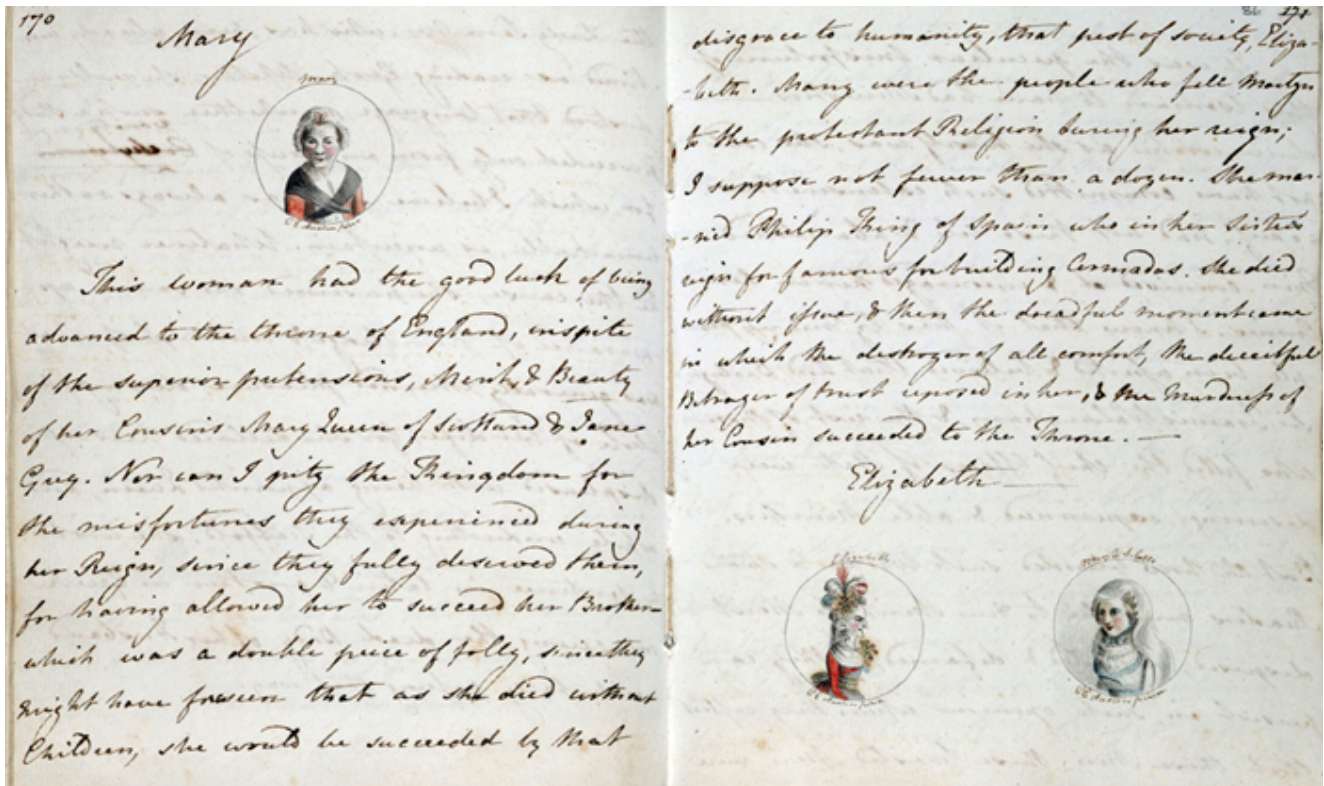 170
Mary
Mary
C E Austen pinx
This woman had the good luck of being
advanced to the throne of England, inspite
of the superior pretensions, Merit, & Beauty
of her Cousins Mary Queen of Scotland & Jane
Grey. Nor can I pity the Kingdom for
the misfortunes they experienced during
her Reign, since they fully deserved them,
for having allowed her to succeed her Brother—
which was a double peice of folly, since they
might have foreseen that as she died without
Children, she would be succeeded by that
86 171
disgrace to humanity, that pest of society, Eliza-
-beth. Many were the people who fell Martyrs
to the protestant Religion during her reign;
I suppose not fewer than a dozen. She mar-
-ried Philip King of Spain who in her Sister's
reign for famous for building Armadas. She died
without issue, & then the dreadful moment came
in which the destroyer of all comfort, the deceitful
Betrayer of trust reposed in her, & the Murdress of
her Cousin succeeded to the Throne. —
Elizabeth —
Elizabeth
C E Austen pinx
Mary Q. of Scots
C E Austen pinx